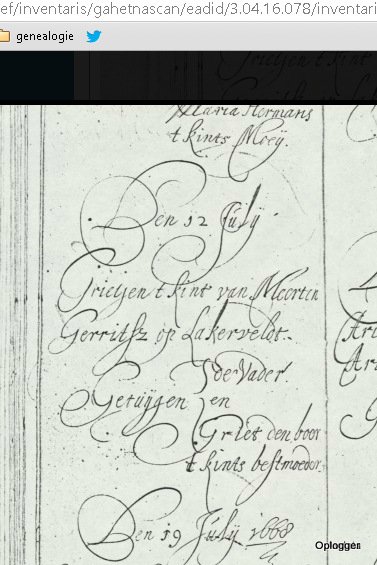 ef/inventaris/gahetnascan/eadid/3.04.16.078/inventari
genealogie
Maria Hermans
t kints Moeÿ.
Den 12 Julÿ
Grietjen t kint van Meerten
Gerritsz op Lakerveldt.
de Vader.
Getuÿgen en
Griet den boer
t kints bestmoeder
Den 19 Julÿ 1668